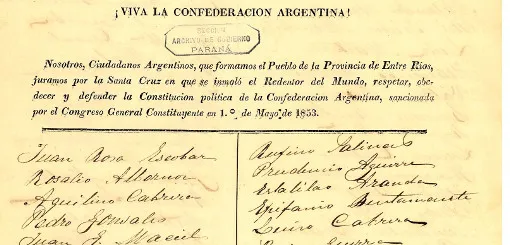 ¡VIVA LA CONFEDERACION ARGENTINA!
SECCION
ARCHIVO DE GOBIERNO
PARANÁ
Nosotros, Ciudadanos Argentinos, que formamos el Pueblo de la Provincia de Entre Rios,
juramos por la Santa Cruz en que se inmoló el Redentor del Mundo, respetar, obe-
decer y defender la Constitucion politica de la Confederacion Argentina, sancionada
por el Congreso General Constituyente en 1.º de Mayo de 1853.
Juan Rosa Escobar
Rosalio Albornoz
Aquilino Cabrera
Pedro Gonsales
Juan E. Maciel
Rufino Salinas
Prudencio Aguirre
Estalilao Aranda
Epifanio Bustamante
Cabrera